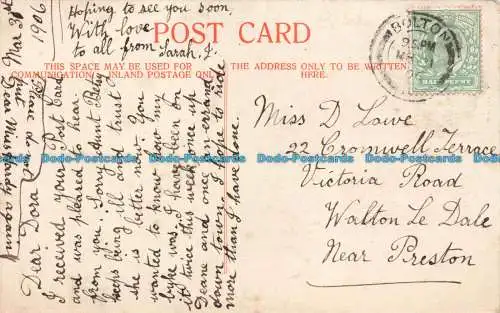 POST CARD
THIS SPACE MAY BE USED FOR
COMMUNICATION INLAND POSTAGE ONLY
THE ADDRESS ONLY TO BE WRITTEN
HERE.
BOLTON
HALFPENNY
Miss D Lowe
22 Cromwell Terrace
Victoria Road
Walton Le Dale
Near Preston
Mar 30th
1906
Dear Dora
I received your Post Card
and was pleased to hear
from you. Sorry Aunt Bella
keeps being ill and trust
she is better now. You
wanted to know how my
byke was. I have been on
it twice this week once up
Deane and once an errand
down town. I hope to ride
more than I have done.
Hoping to see you soon.
With love
to all from Sarah J.
Dodo-Postcards
Dodo-Postcards
Dodo-Postcards
Dodo-Postcards
Dodo-Postcards
Dodo-Postcards